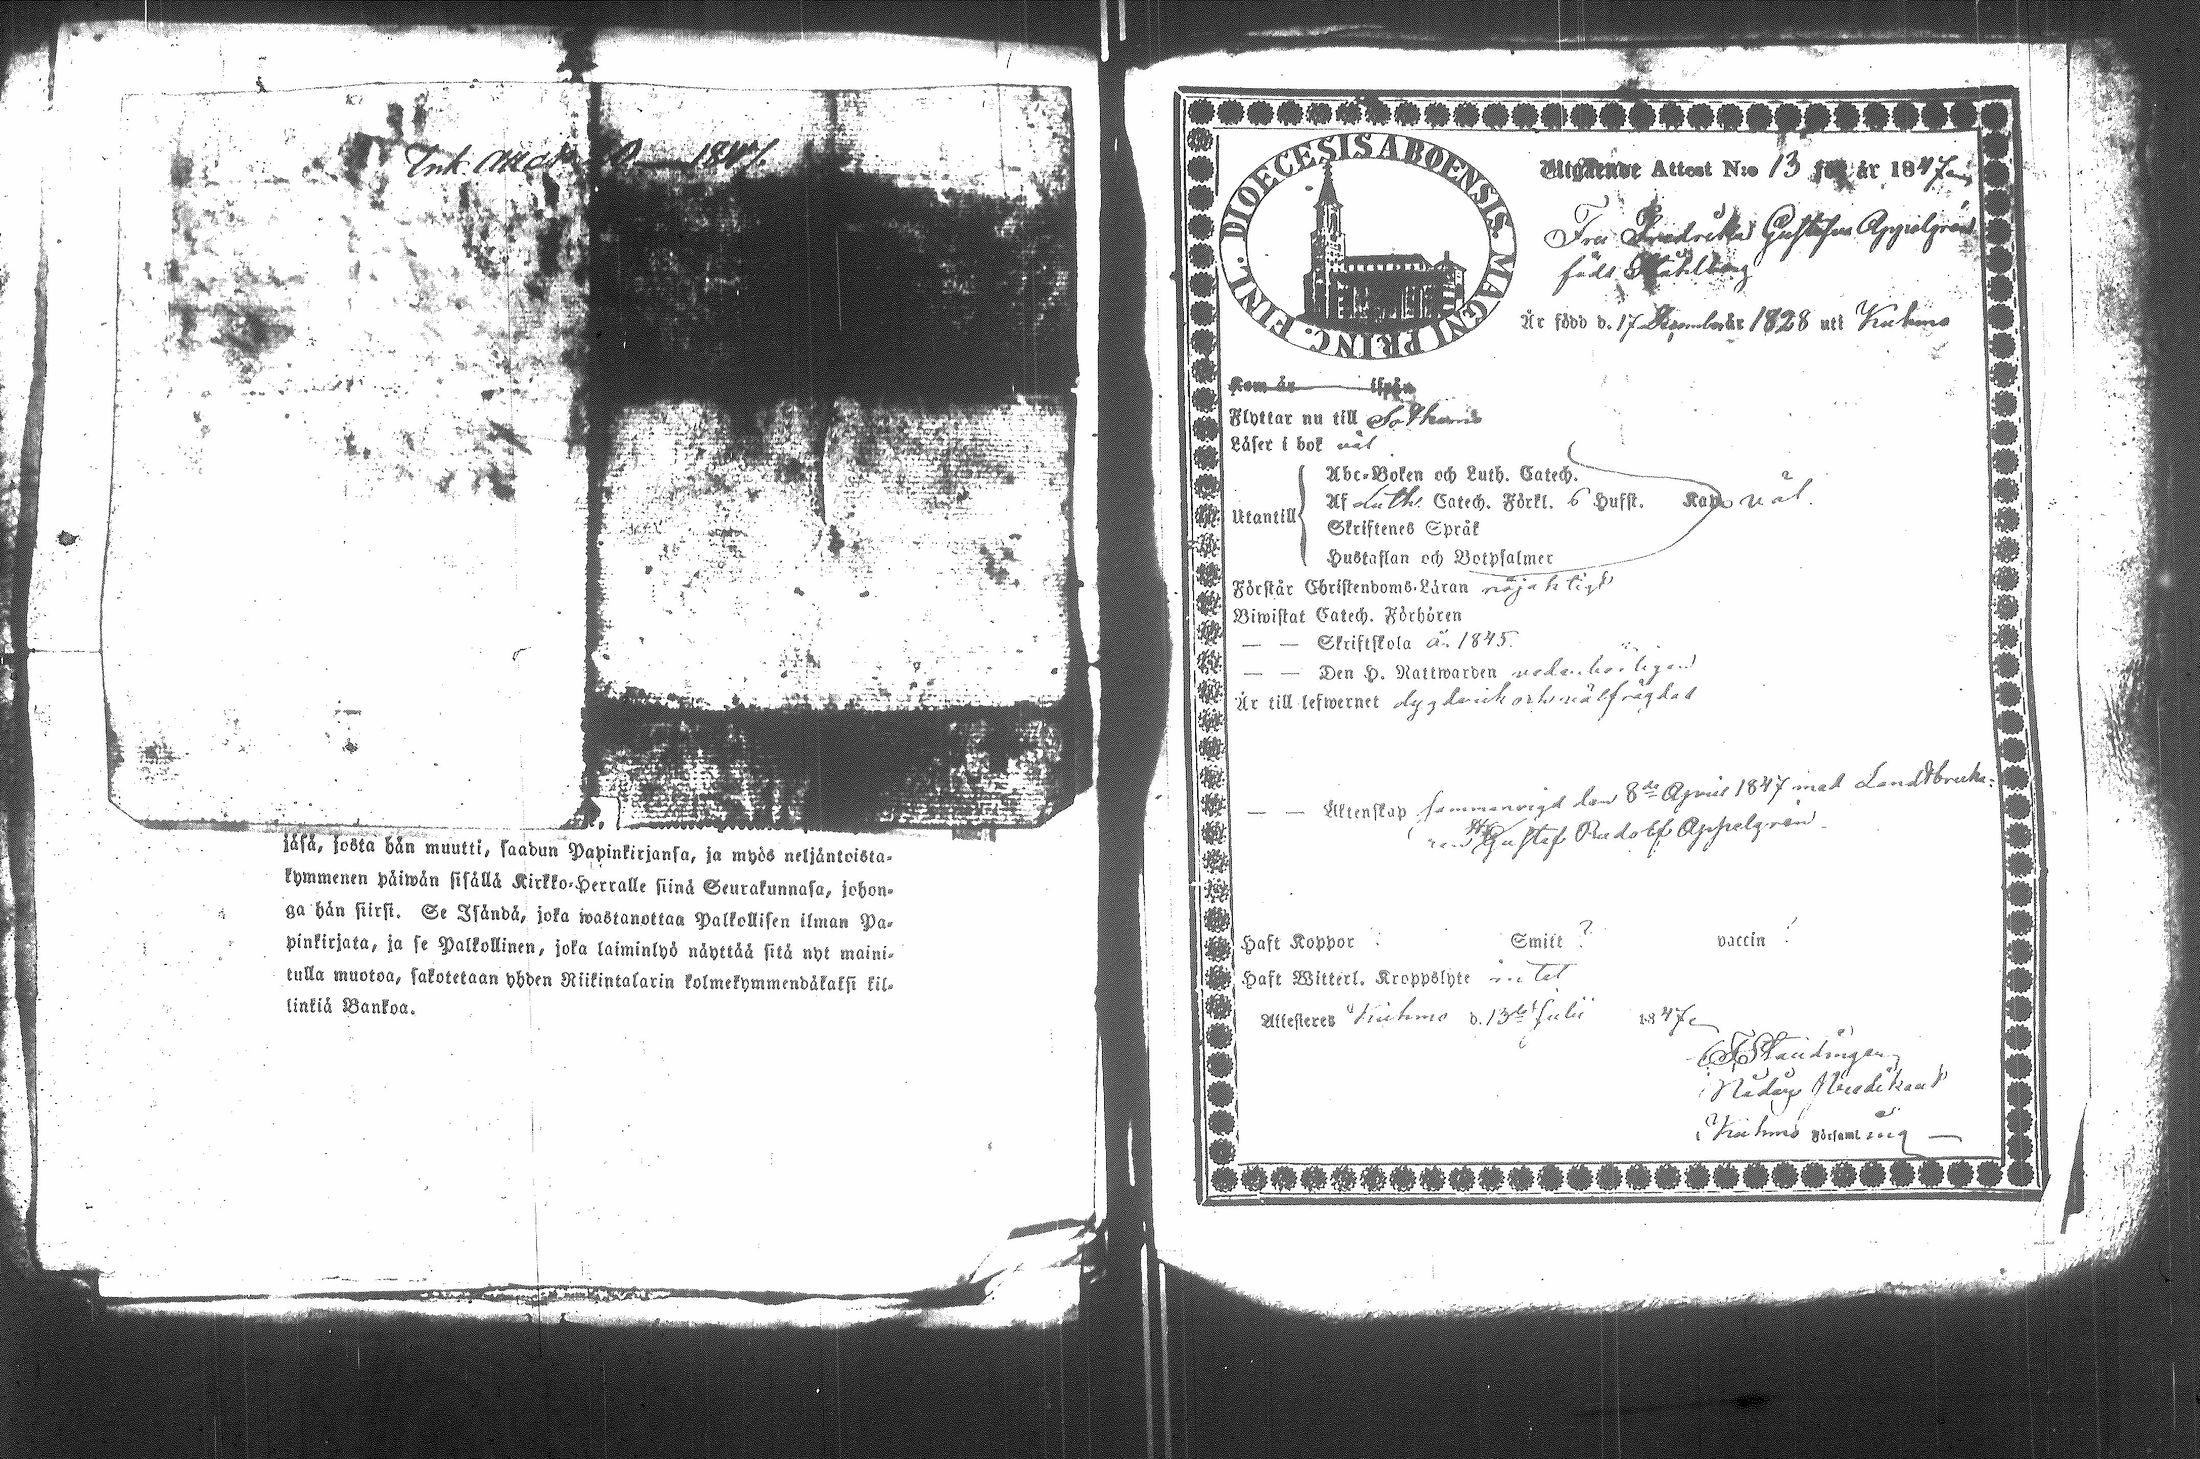 Ink. 1847.
jäsä, josta hän muutti, saadun Papinkirjansa, ja myös neljäntoista-
kymmenen päiwän sisällä Kirkko-Herralle siinä Seurakunnasa, johon-
ga hän siirsi. Se Isändä, joka wastanottaa Palkollisen ilman Pa-
pinkirjata, ja se Palkollinen, joka laiminlyö näyttää sitä nyt maini-
tulla muotoa, sakotetaan yhden Riikintalarin kolmekymmendäkaksi kil-
linkiä Bankoa.
DIOECESIS ABOENSIS. MAGNI PRINC. FINL.
Utgående Attest N:o 13 för år 1847
Fru Fredrika Gustafva Appelgrén
född Ståhlberg
Är född d. 17 December år 1828 uti Kuhmo
Kom år ifrån
Flyttar nu till Sotkamo
Läser i bok väl
Utantill
Abc-Boken och Luth. Catech.
Af Luth. Catech. Förkl. 6 Hufst. Kap. väl.
Skriftenes Språk
Hustaflan och Botpsalmer
Förstår Christendoms-Läran nöjaktigt
Biwistat Catech. Förhören
— — Skriftskola å. 1845.
— — Den H. Nattwarden vederbörligen
Är till lefwernet dygderik och välfrägdad
— — Äktenskap sammanvigd den 8de April 1847 med Landtbruka-
ren Gustaf Rudolf Appelgrén.
Haft Koppor ? Smitt ? vaccin ?
Haft Witterl. Kroppslyte intet
Attesteres Kuhmo d. 13de Julii 1847
Ståudinger
Nådårs Predikant
Kuhmo Församling